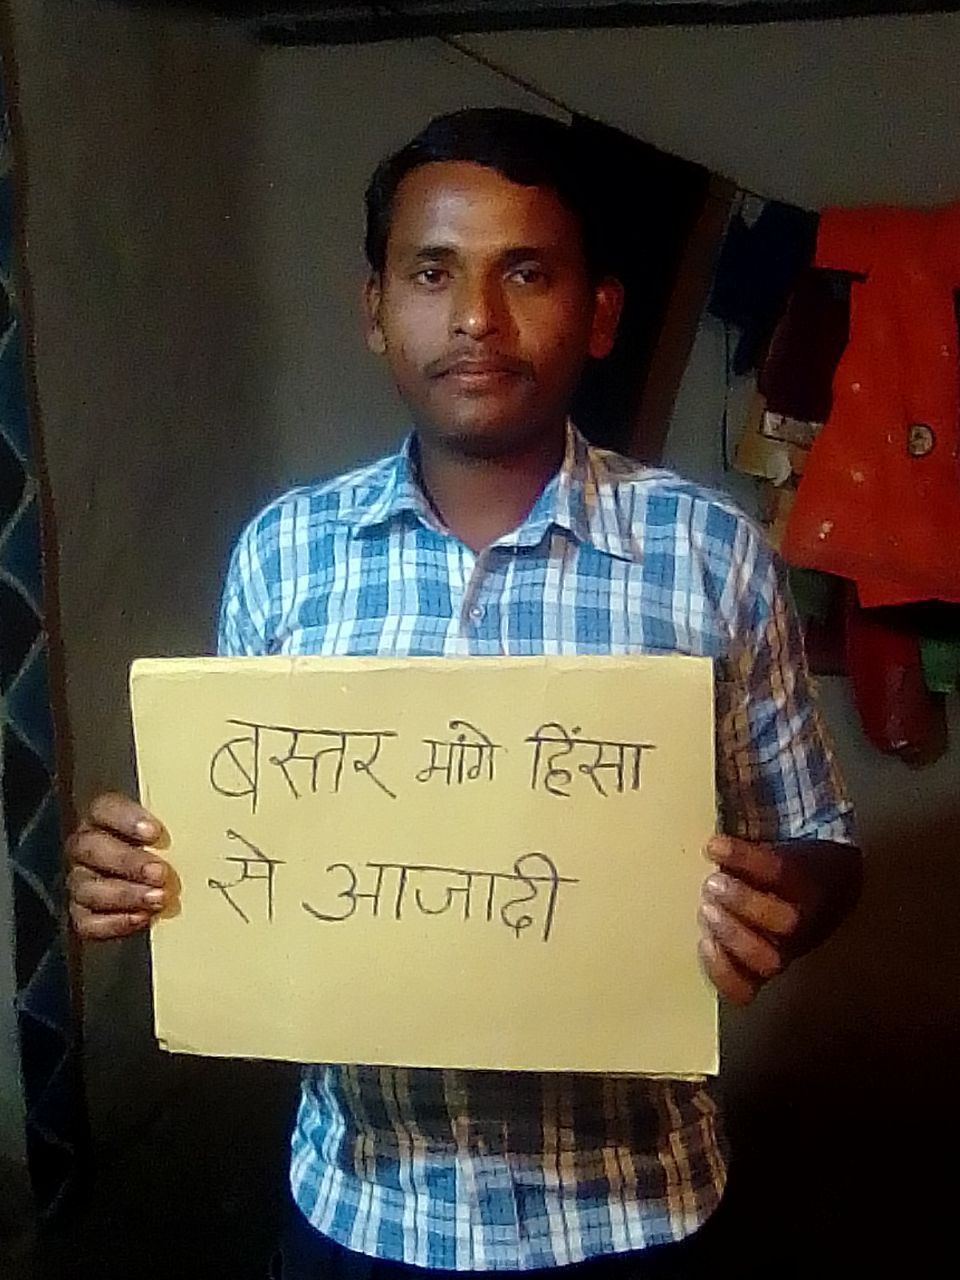 बस्तर मांगे हिंसा
से आजादी